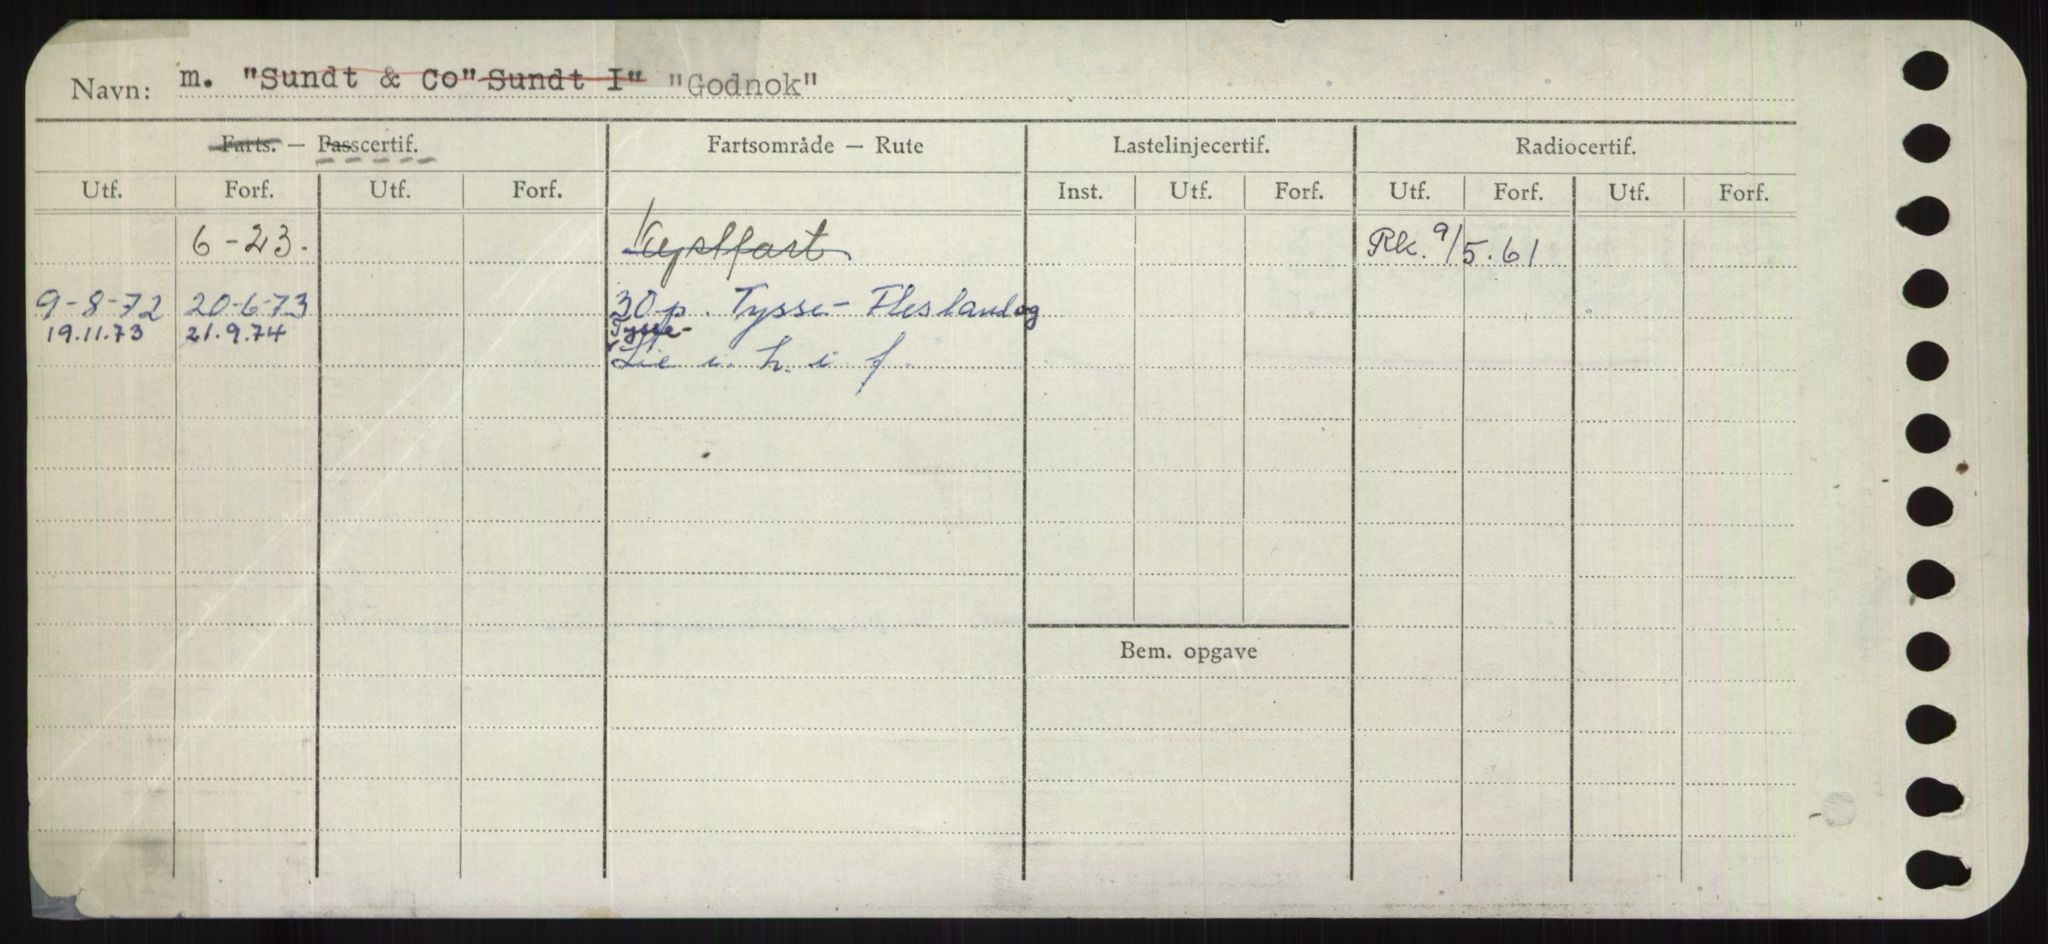 Navn: m. "Sundt & Co" Sundt I" "Godnok"
Farts. — Passcertif. Fartsområde — Rute Lastelinjecertif. Radiocertif.
Utf. Forf. Utf. Forf. Inst. Utf. Forf. Utf. Forf. Utf. Forf.
6-23. Kystfart Rk. 9/5.61
9-8-72 20-6-73 30 p. Tysse- Flesland og
19.11.73 21.9.74 Tysse-
Lie i. h. i f.
Bem. opgave